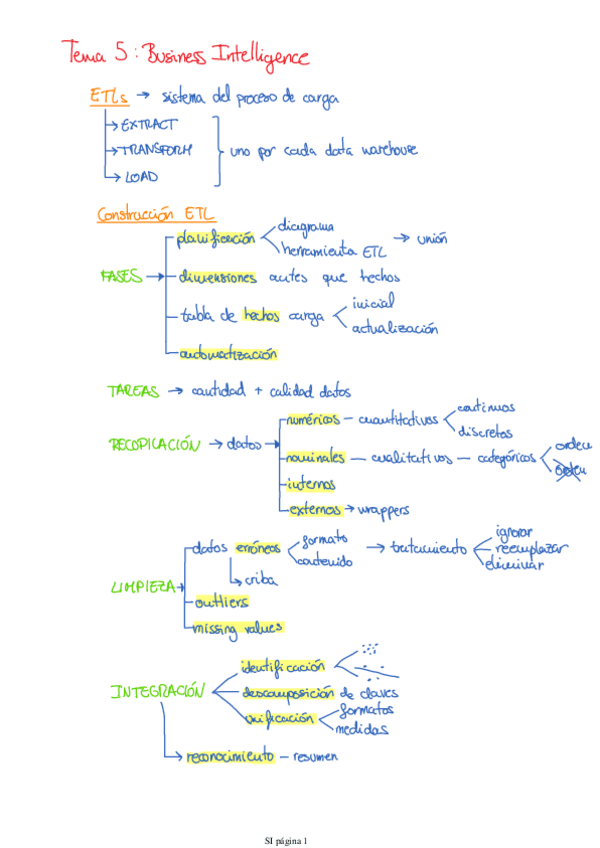 Tema 5: Business Intelligence
ETLs → sistema del proceso de carga
→ EXTRACT
→ TRANSFORM
→ LOAD
uno por cada data warehouse
Construcción ETL
FASES →
planificación
diagrama
herramienta ETL
→ unión
dimensiones antes que hechos
tabla de hechos carga
inicial
actualización
automatización
TAREAS → cantidad + calidad datos
RECOPILACIÓN → datos →
numéricos – cuantitativos
continuos
discretos
nominales – cualitativos – categóricos
orden
orden
internos
externos → wrappers
LIMPIEZA →
datos erróneos
formato
contenido
→ tratamiento
ignorar
reemplazar
eliminar
criba
outliers
missing values
INTEGRACIÓN
identificación
descomposición de claves
unificación
formatos
medidas
→ reconocimiento – resumen
SI página 1